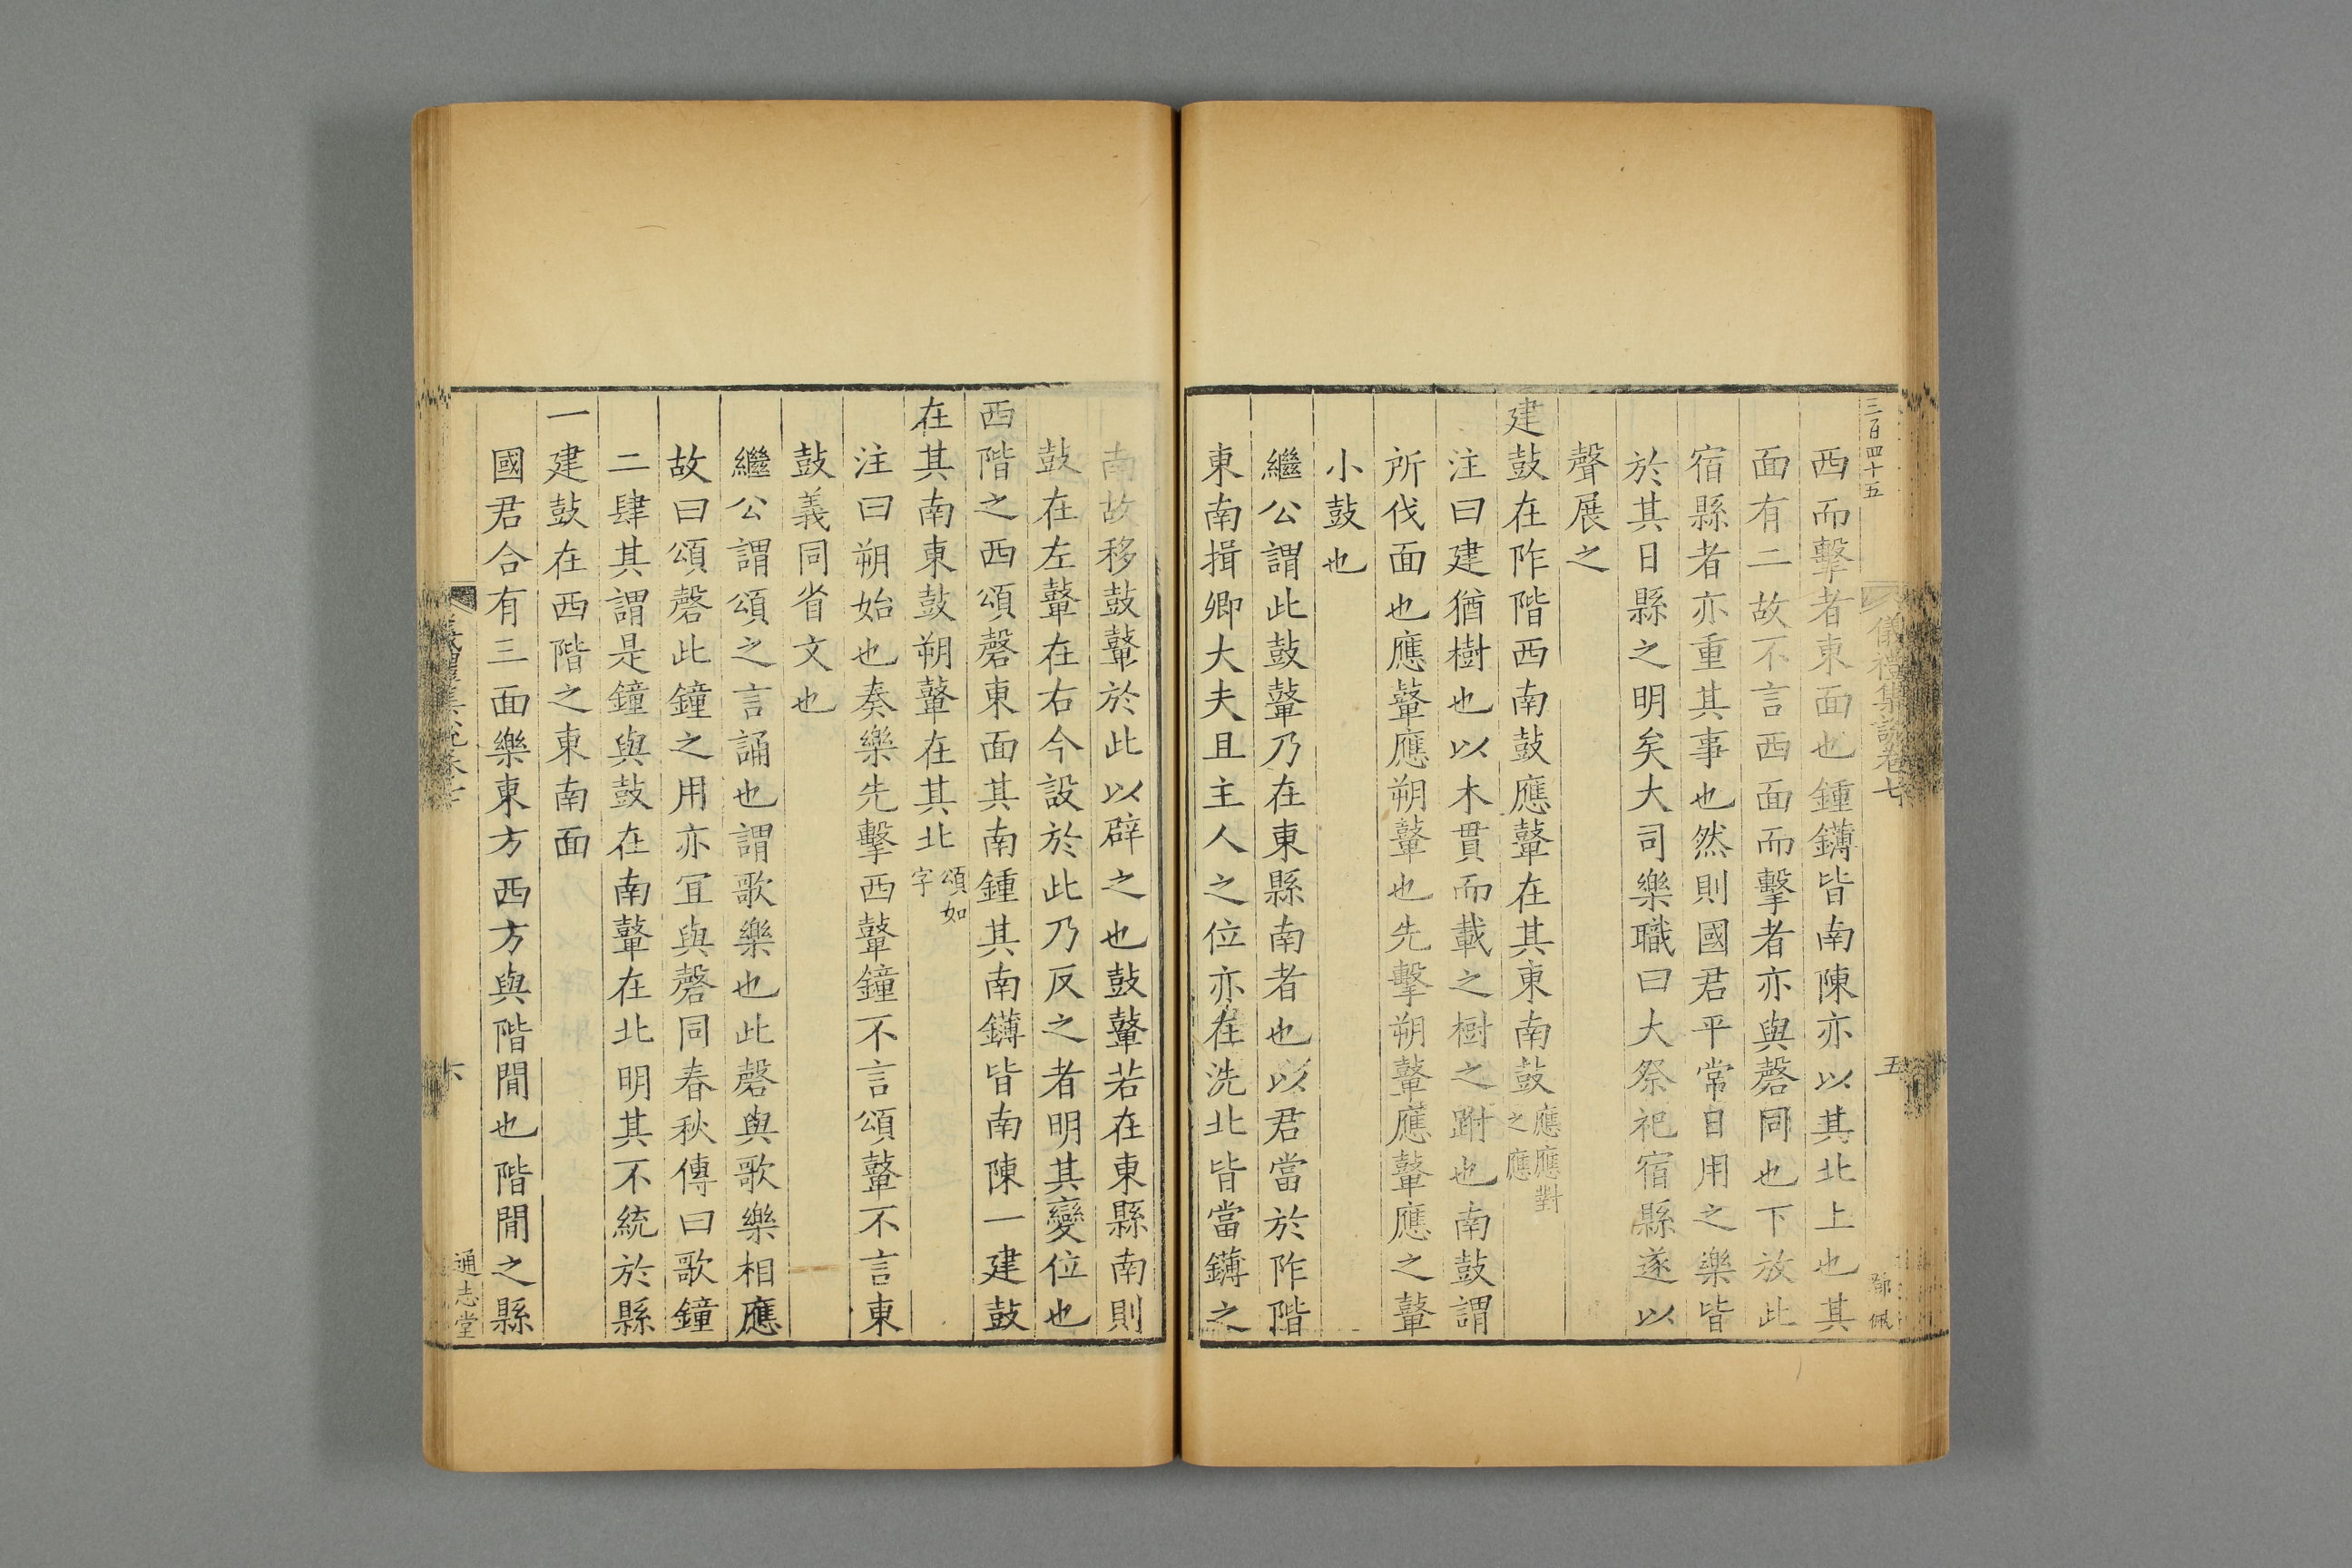 三百四十五
儀禮集說卷七
五
鄧佩
西而擊者東面也鍾鑮皆南陳亦以其北上也其
面有二故不言西面而擊者亦與磬同也下放此
宿縣者亦重其事也然則國君平常日用之樂皆
於其日縣之明矣大司樂職曰大祭祀宿縣遂以
聲展之
建鼓在阼階西南鼓應鼙在其東南鼓應應對之應
注曰建猶樹也以木貫而載之樹之跗也南鼓謂
所伐面也應鼙應朔鼙也先擊朔鼙應鼙應之鼙
小鼓也
繼公謂此鼓鼙乃在東縣南者也以君當於阼階
東南揖卿大夫且主人之位亦在洗北皆當鑮之
南故移鼓鼙於此以辟之也鼓鼙若在東縣南則
鼓在左鼙在右今設於此乃反之者明其變位也
西階之西頌磬東面其南鍾其南鑮皆南陳一建鼓
在其南東鼓朔鼙在其北頌如字
注曰朔始也奏樂先擊西鼙鐘不言頌鼙不言東
鼓義同省文也
繼公謂頌之言誦也謂歌樂也此磬與歌樂相應
故曰頌磬此鐘之用亦宜與磬同春秋傳曰歌鐘
二肆其謂是鐘與鼓在南鼙在北明其不統於縣
一建鼓在西階之東南面
國君合有三面樂東方西方與階閒也階閒之縣
六
通志堂